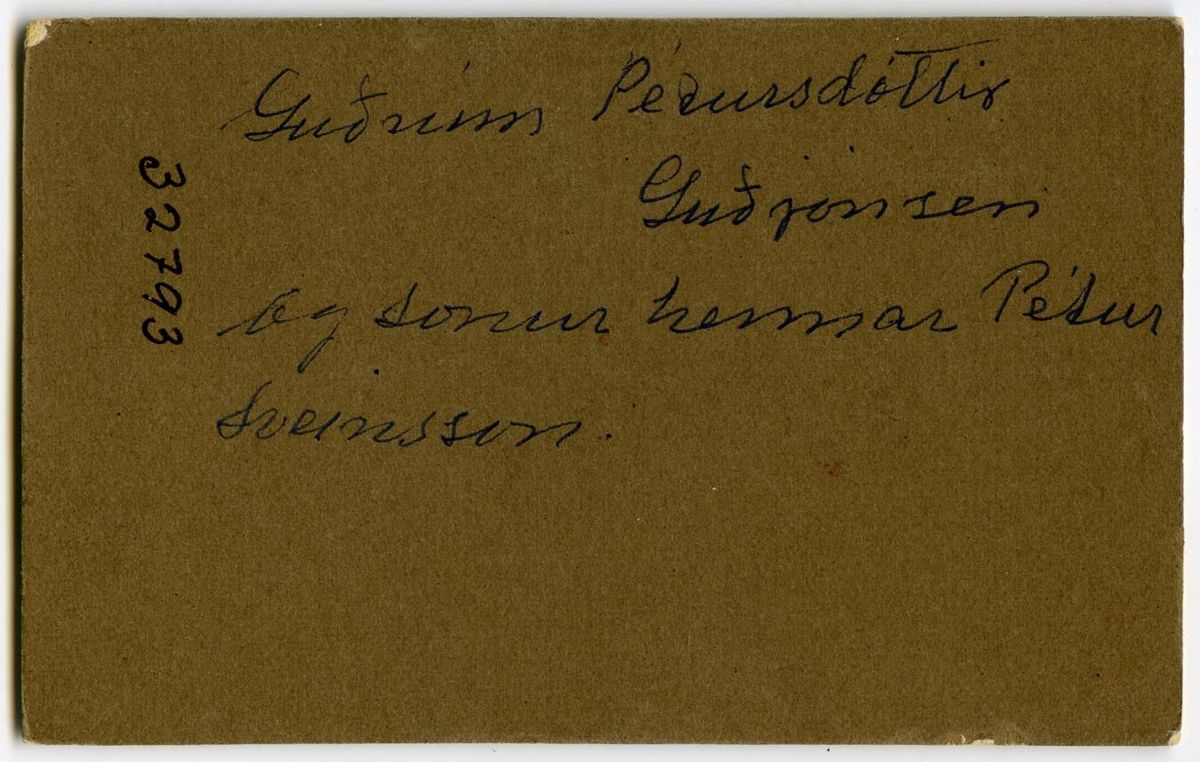 Guðrún Pétursdóttir
Guðjónsen
og sonur hennar Pétur
Sveinsson.
32793